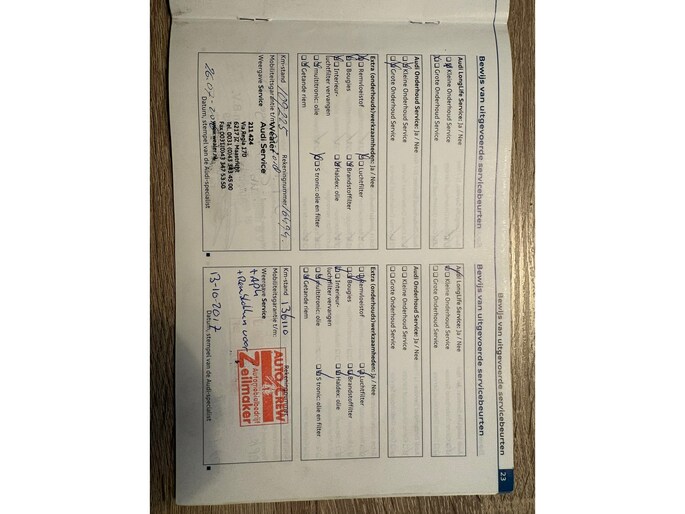 Bewijs van uitgevoerde servicebeurten
Audi LongLife Service: Ja / Nee
Kleine Onderhoud Service
Grote Onderhoud Service
Audi Onderhoud Service: Ja / Nee
Kleine Onderhoud Service
Grote Onderhoud Service
Extra (onderhouds)werkzaamheden: Ja / Nee
Remvloeistof
Luchtfilter
Bougies
Brandstoffilter
Interieur-
luchtfilter vervangen
Haldex: olie
multitronic: olie
S tronic: olie en filter
Getande riem
Km-stand
Rekeningnummer
Mobiliteitsgarantie t/m:
Weergave Service
Audi Service
211 424
Via Regia 170
6217 HZ Maastricht
Datum, stempel van de Audi-specialist
Bewijs van uitgevoerde servicebeurten
Bewijs van uitgevoerde servicebeurten
23
Audi LongLife Service: Ja / Nee
Kleine Onderhoud Service
Grote Onderhoud Service
Audi Onderhoud Service: Ja / Nee
Kleine Onderhoud Service
Grote Onderhoud Service
Extra (onderhouds)werkzaamheden: Ja / Nee
Remvloeistof
Luchtfilter
Bougies
Brandstoffilter
Interieur-
luchtfilter vervangen
Haldex: olie
multitronic: olie
S tronic: olie en filter
Getande riem
Km-stand 136110
Mobiliteitsgarantie t/m:
Weergave Service
AUTO CREW
Automobielbedrijf
Zeilmaker
+ APK
13-10-2017
Datum, stempel van de Audi-specialist